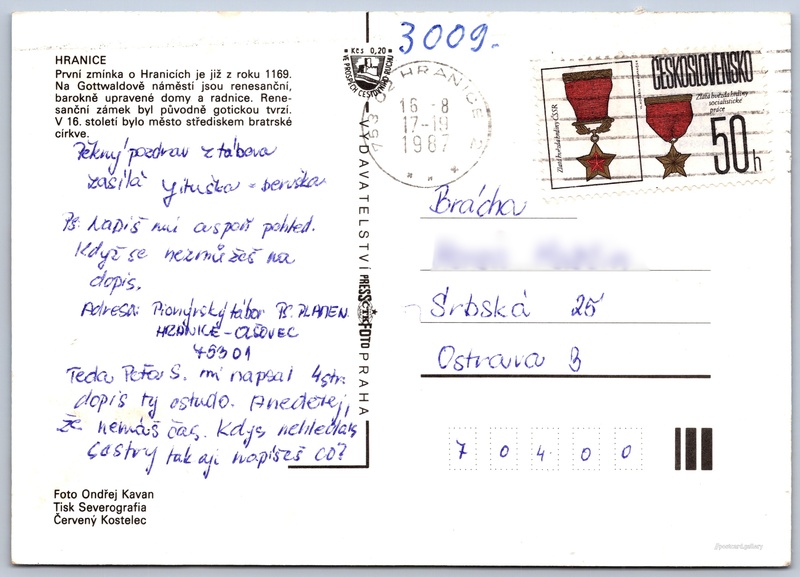 HRANICE
První zmínka o Hranicích je již z roku 1169.
Na Gottwaldově náměstí jsou renesanční,
barokně upravené domy a radnice. Rene-
sanční zámek byl původně gotickou tvrzí.
V 16. století bylo město střediskem bratrské
církve.
Pěkný pozdrav z tábora
zasílá Jituška - beruška
Ps. Napiš mi aspoň pohled.
Když se nezmůžeš na
dopis.
Adresa: Pionýrský tábor PS. PLAMEN
HRANICE-OLŠOVEC
75301
Teda Peťa S. mi napsal 4str.
dopis ty ostudo. A neříkej,
že nemáš čas. Kdys nehledals
sestry tak ají napíšeš co?
Foto Ondřej Kavan
Tisk Severografia
Červený Kostelec
Kčs 0,20
VE PROSPĚCH CESTOVNÍHO RUCHU
VYDAVATELSTVÍ PRESSFOTO PRAHA
3009.
753 01 HRANICE 2
16.-8
17-19
1987
ČESKOSLOVENSKO
Zlatá hvězda hrdiny ČSSR
Zlatá hvězda hrdiny
socialistické
práce
50h
Brácha
Srbská 25
Ostrava 3
7 0 4 0 0